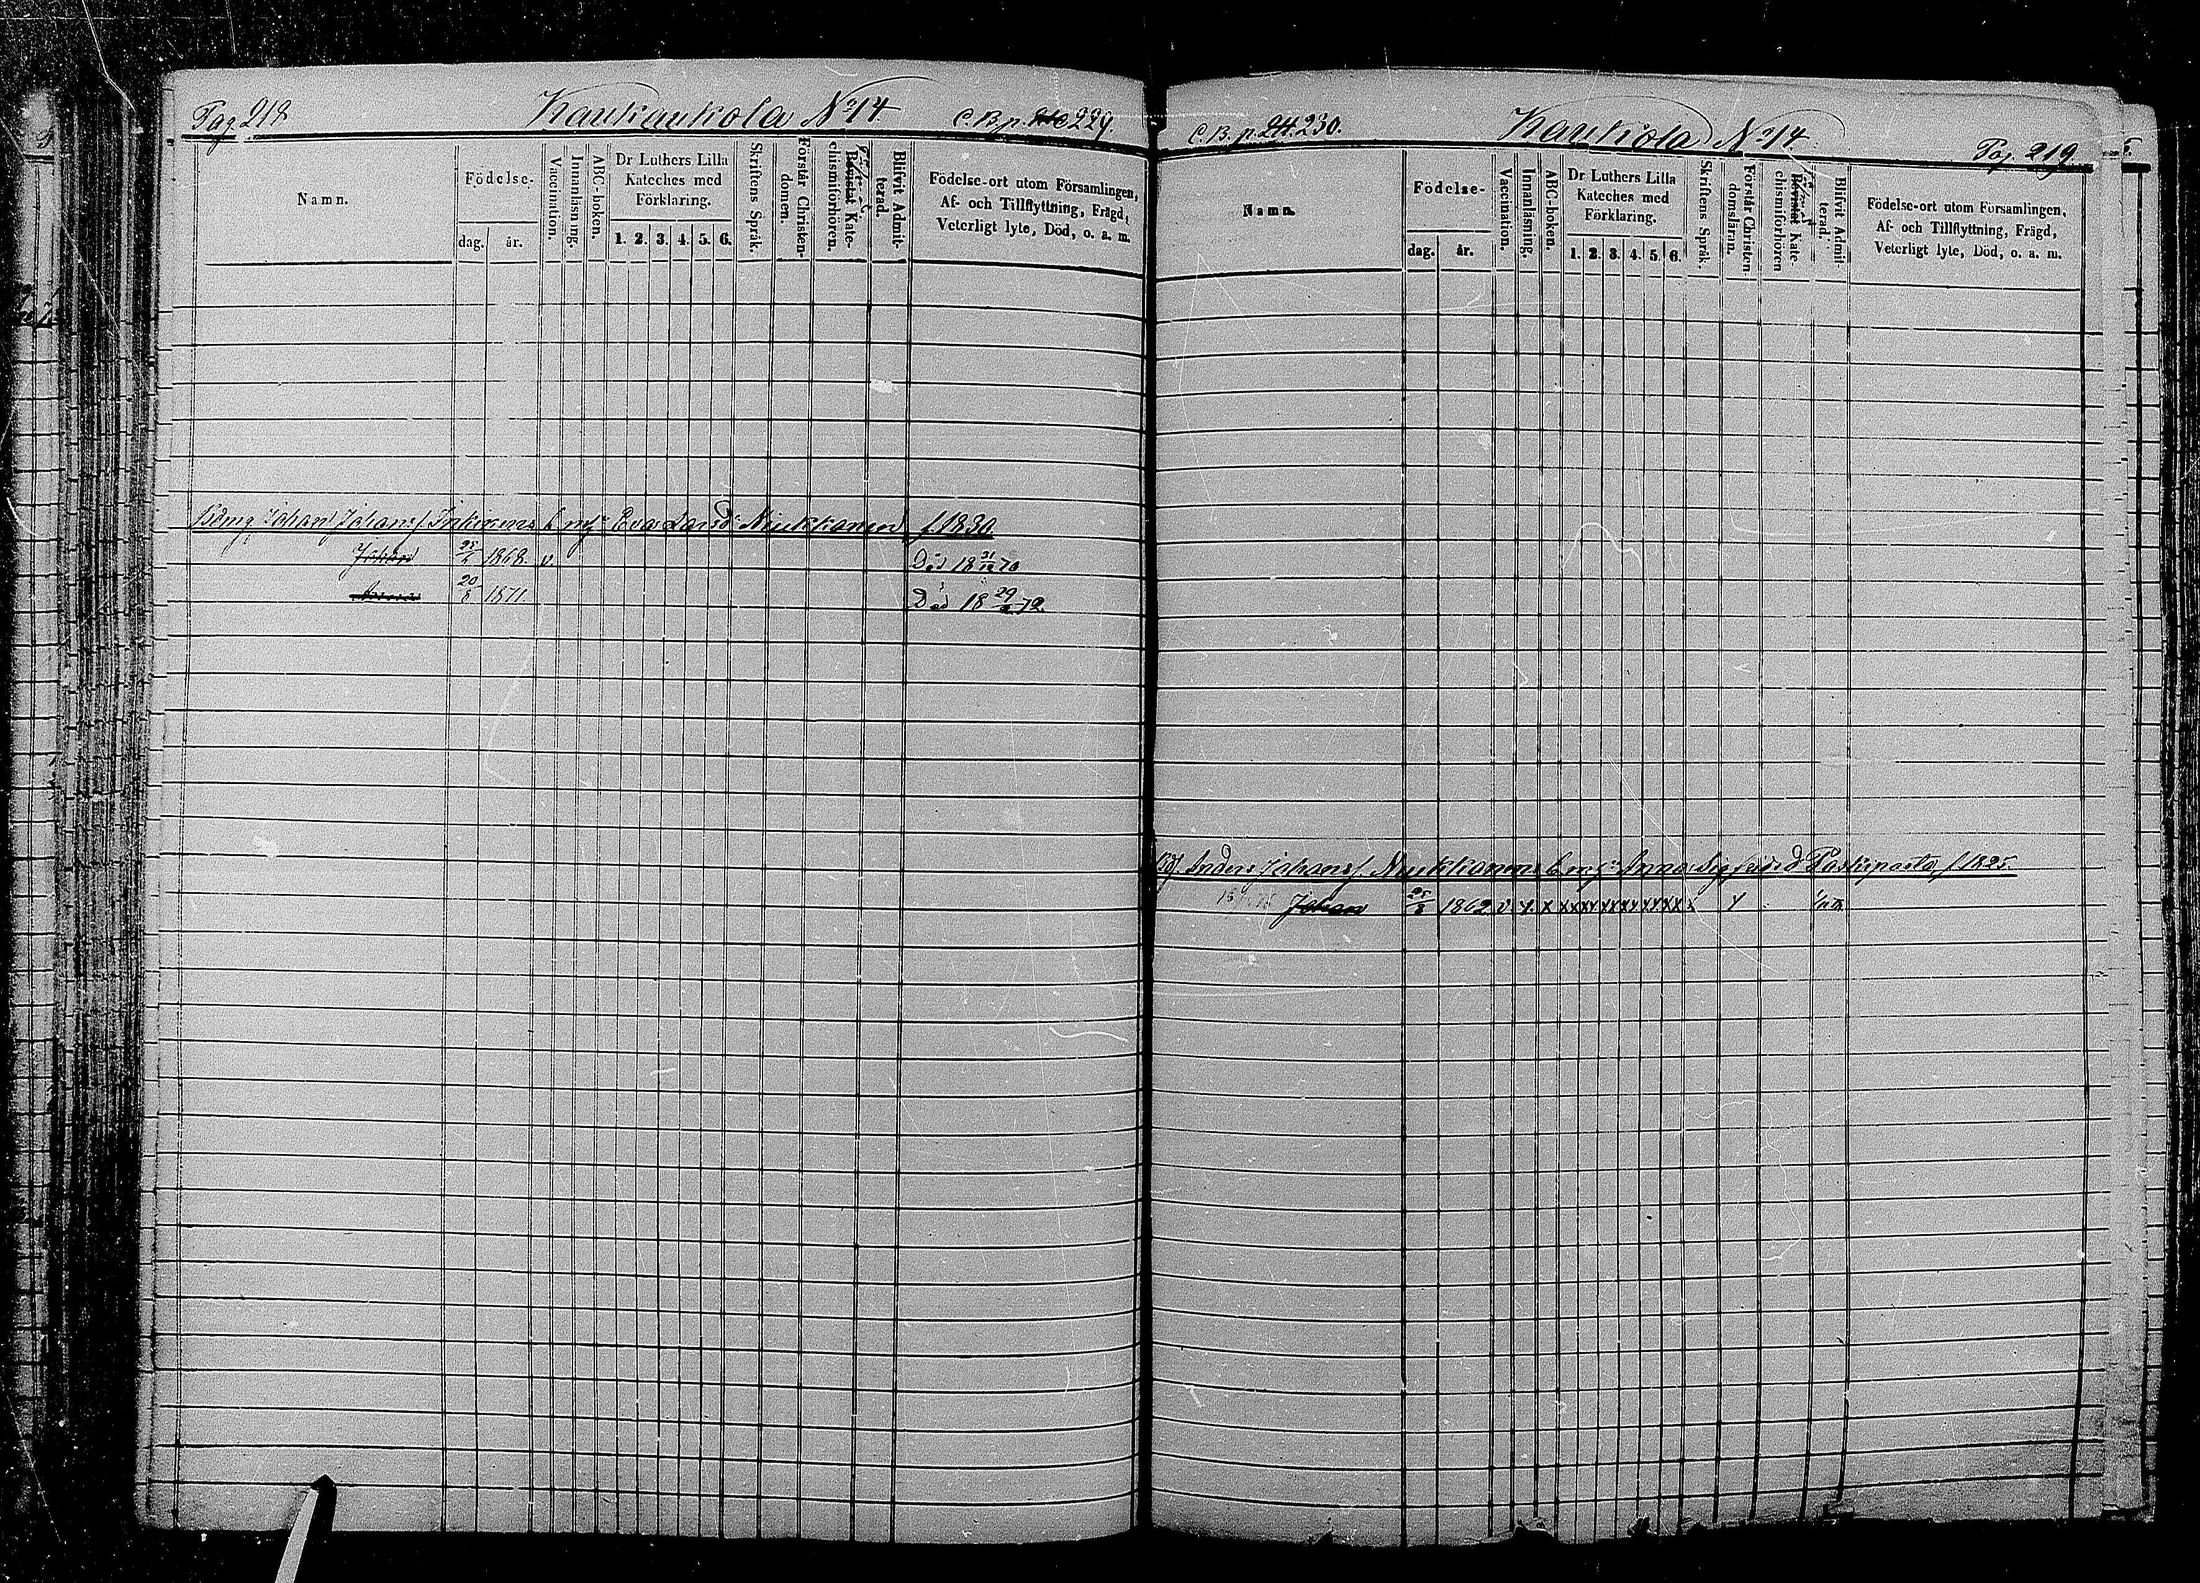 Pag 218 Kaukola No 14 C.B.p. 229.
Namn.
Födelse-
dag. år.
Vaccination.
Innanläsning.
ABC-boken.
Dr Luthers Lilla
Kateches med
Förklaring.
1. 2. 3. 4. 5. 6.
Skriftens Språk.
Förstår Christen-
domen.
Bevistat Kate-
chismiförhören.
Blifvit Admit-
terad.
Födelse-ort utom Församlingen,
Af- och Tillflyttning, Frägd,
Veterligt lyte, Död, o. a. m.
Johan Johansf. Inkinens b. m. Eva Davidsd Niukkanen f. 1830
Johan 25 1868. v. Död 18 31/12 70
Anna 20/8 1871 Död 18 29 72.
C.B.p. 24. 230. Kaukola No 14 Pag. 219
Namn.
Födelse-
dag. år.
Vaccination.
Innanläsning.
ABC-boken.
Dr Luthers Lilla
Kateches med
Förklaring.
1. 2. 3. 4. 5. 6.
Skriftens Språk.
Förstår Christen
domsläran.
Bevistat Kate-
chismiförhören
Blifvit Admit-
terad.
Födelse-ort utom Församlingen,
Af- och Tillflyttning, Frägd,
Veterligt lyte, Död, o. a. m.
Anders Johansf. Niukkanens b. m. Anna Sigfridsd Paskiparta f. 1825.
Johan 25/8 1862 v x x xx xx xx xx xx xx x